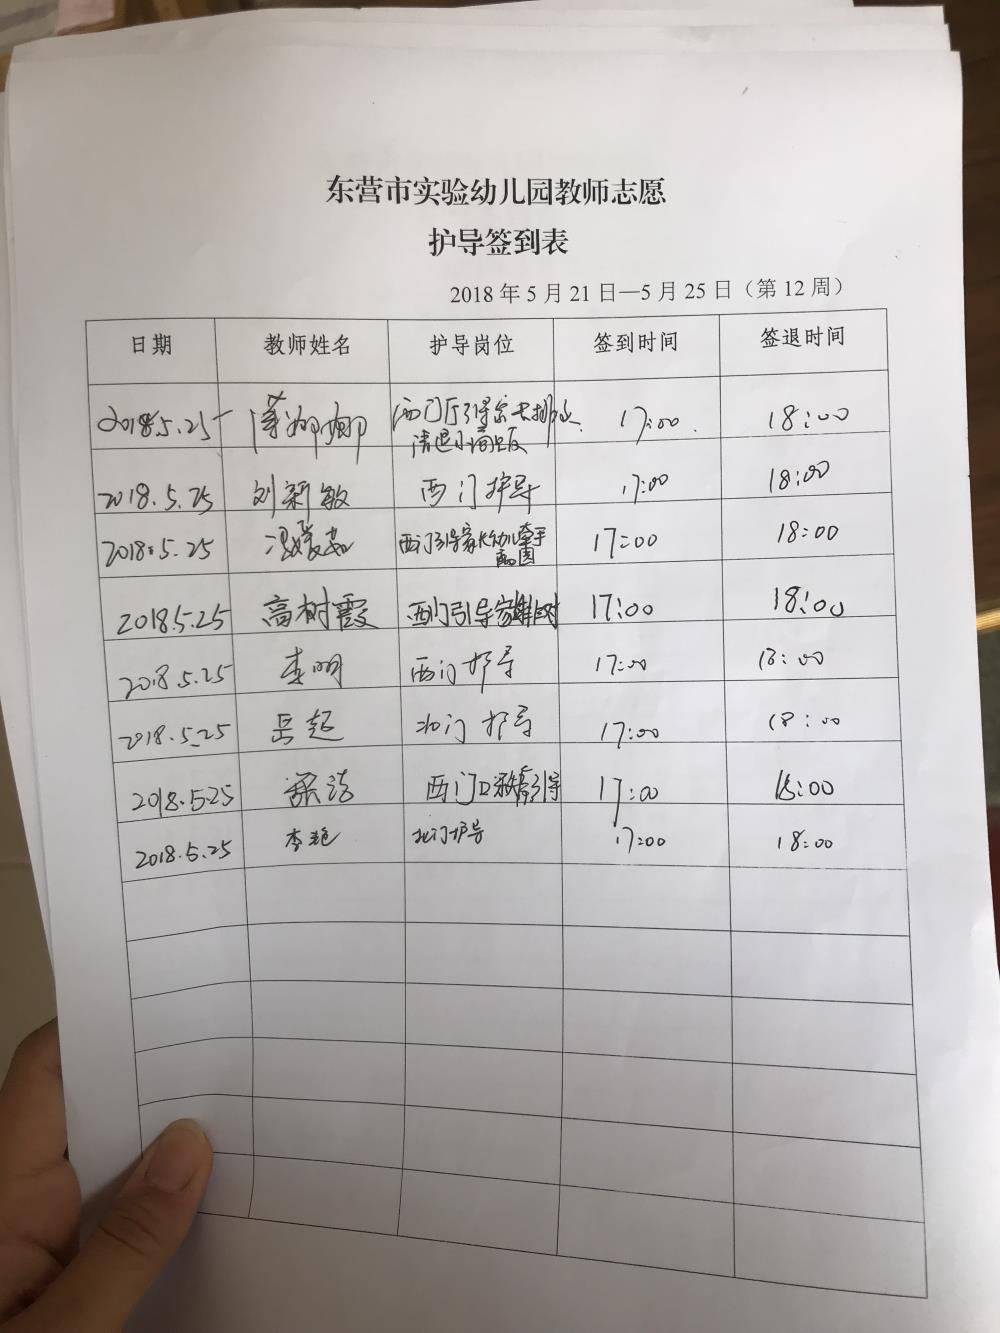 东营市实验幼儿园教师志愿
护导签到表
2018 年 5 月 21 日—5 月 25 日（第 12 周）
日期 教师姓名 护导岗位 签到时间 签退时间
2018.5.25 娜娜 西门厅引导家长排放 17:00 18:00
清退小商贩
2018.5.25 刘新敏 西门护导 17:00 18:00
2018.5.25 冯媛茹 西门引导家长幼儿牵手 17:00 18:00
离园
2018.5.25 高树霞 西门引导家长 17:00 18:00
2018.5.25 李明 西门护导 17:00 18:00
2018.5.25 岳超 北门护导 17:00 18:00
2018.5.25 梁洁 西门口引导 17:00 18:00
2018.5.25 李艳 北门护导 17:00 18:00